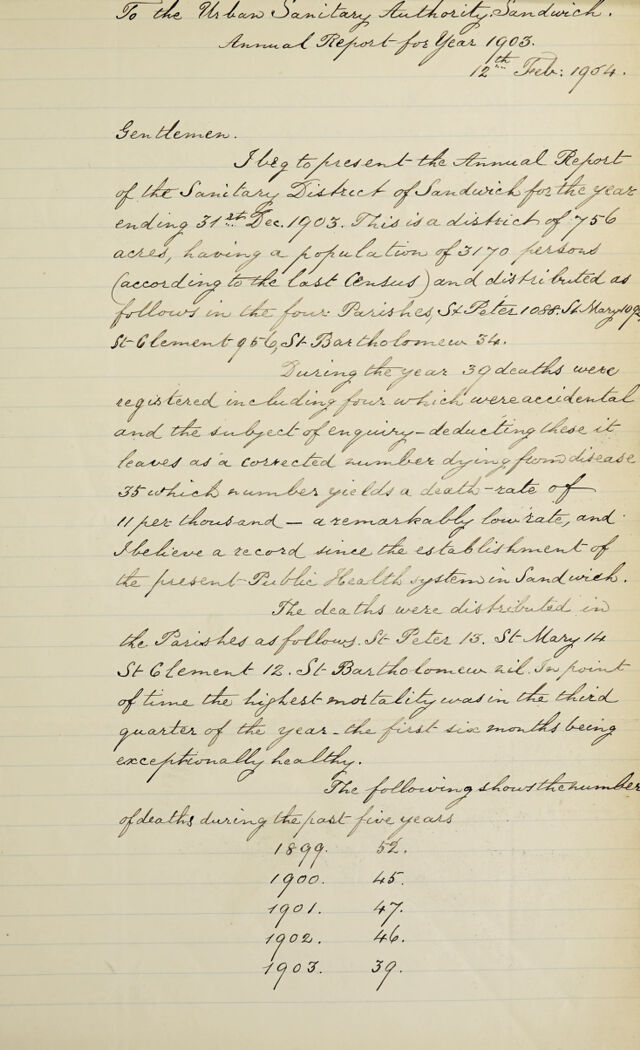 To the Urban Sanitary Authority, Sandwich.
Annual Report for Year 1903.
12th Feb: 1904.
Gentlemen.
I beg to present the Annual Report
of the Sanitary District of Sandwich for the year
ending 31st Dec. 1903. This is a district of 756
acres, having a population of 3170 persons
(according to the last Census) and distributed as
follows in the four Parishes, St Peter 1088. St Mary 1092
St Clement 956, St Bartholomew 34.
During the year 39 deaths were
registered including four which were accidental
and the subject of enquiry – deducting these it
leaves as a corrected number dying from disease
35 which number yields a death-rate of
11 per thousand – a remarkably low rate, and
I believe a record since the establishment of
the present Public Health system in Sandwich.
The deaths were distributed in
the Parishes as follows. St Peter 13. St Mary 14
St Clement 12. St Bartholomew nil. In point
of time the highest mortality was in the third
quarter of the year – the first six months being
exceptionally healthy.
The following shows the number
of deaths during the past five years
1899. 52.
1900. 45.
1901. 47.
1902. 46.
1903. 39.